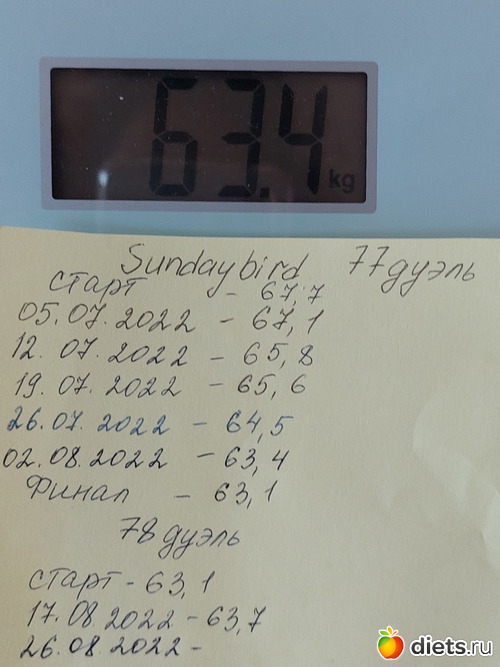 63.4 kg
Sundaybird 77 дуэль
старт - 67,7
05.07.2022 - 67,1
12.07.2022 - 65,8
19.07.2022 - 65,6
26.07.2022 - 64,5
02.08.2022 - 63,4
Финал - 63,1
78 дуэль
старт - 63,1
17.08.2022 - 63,7
26.08.2022 -
diets.ru